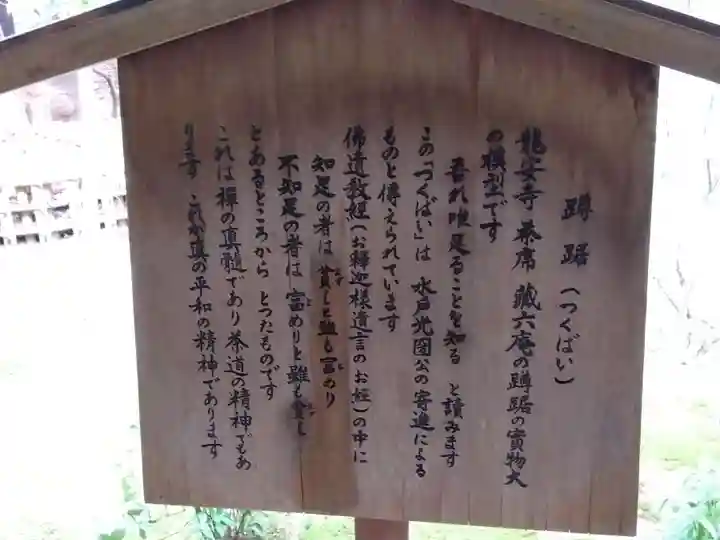 蹲踞(つくばい)
龍安寺茶席 藏六庵の蹲踞の實物大
の模型です
吾れ唯足ることを知る と讀みます
この「つくばい」は 水戸光圀公の寄進による
ものと傳えられています
佛遺教經(お釋迦様遺言のお経)の中に
知足の者は 貧しと雖も富めり
不知足の者は 富めりと雖も貧し
とあるところから とつたものです
これは禅の真髓であり茶道の精神でもあ
ります これが真の平和の精神であります